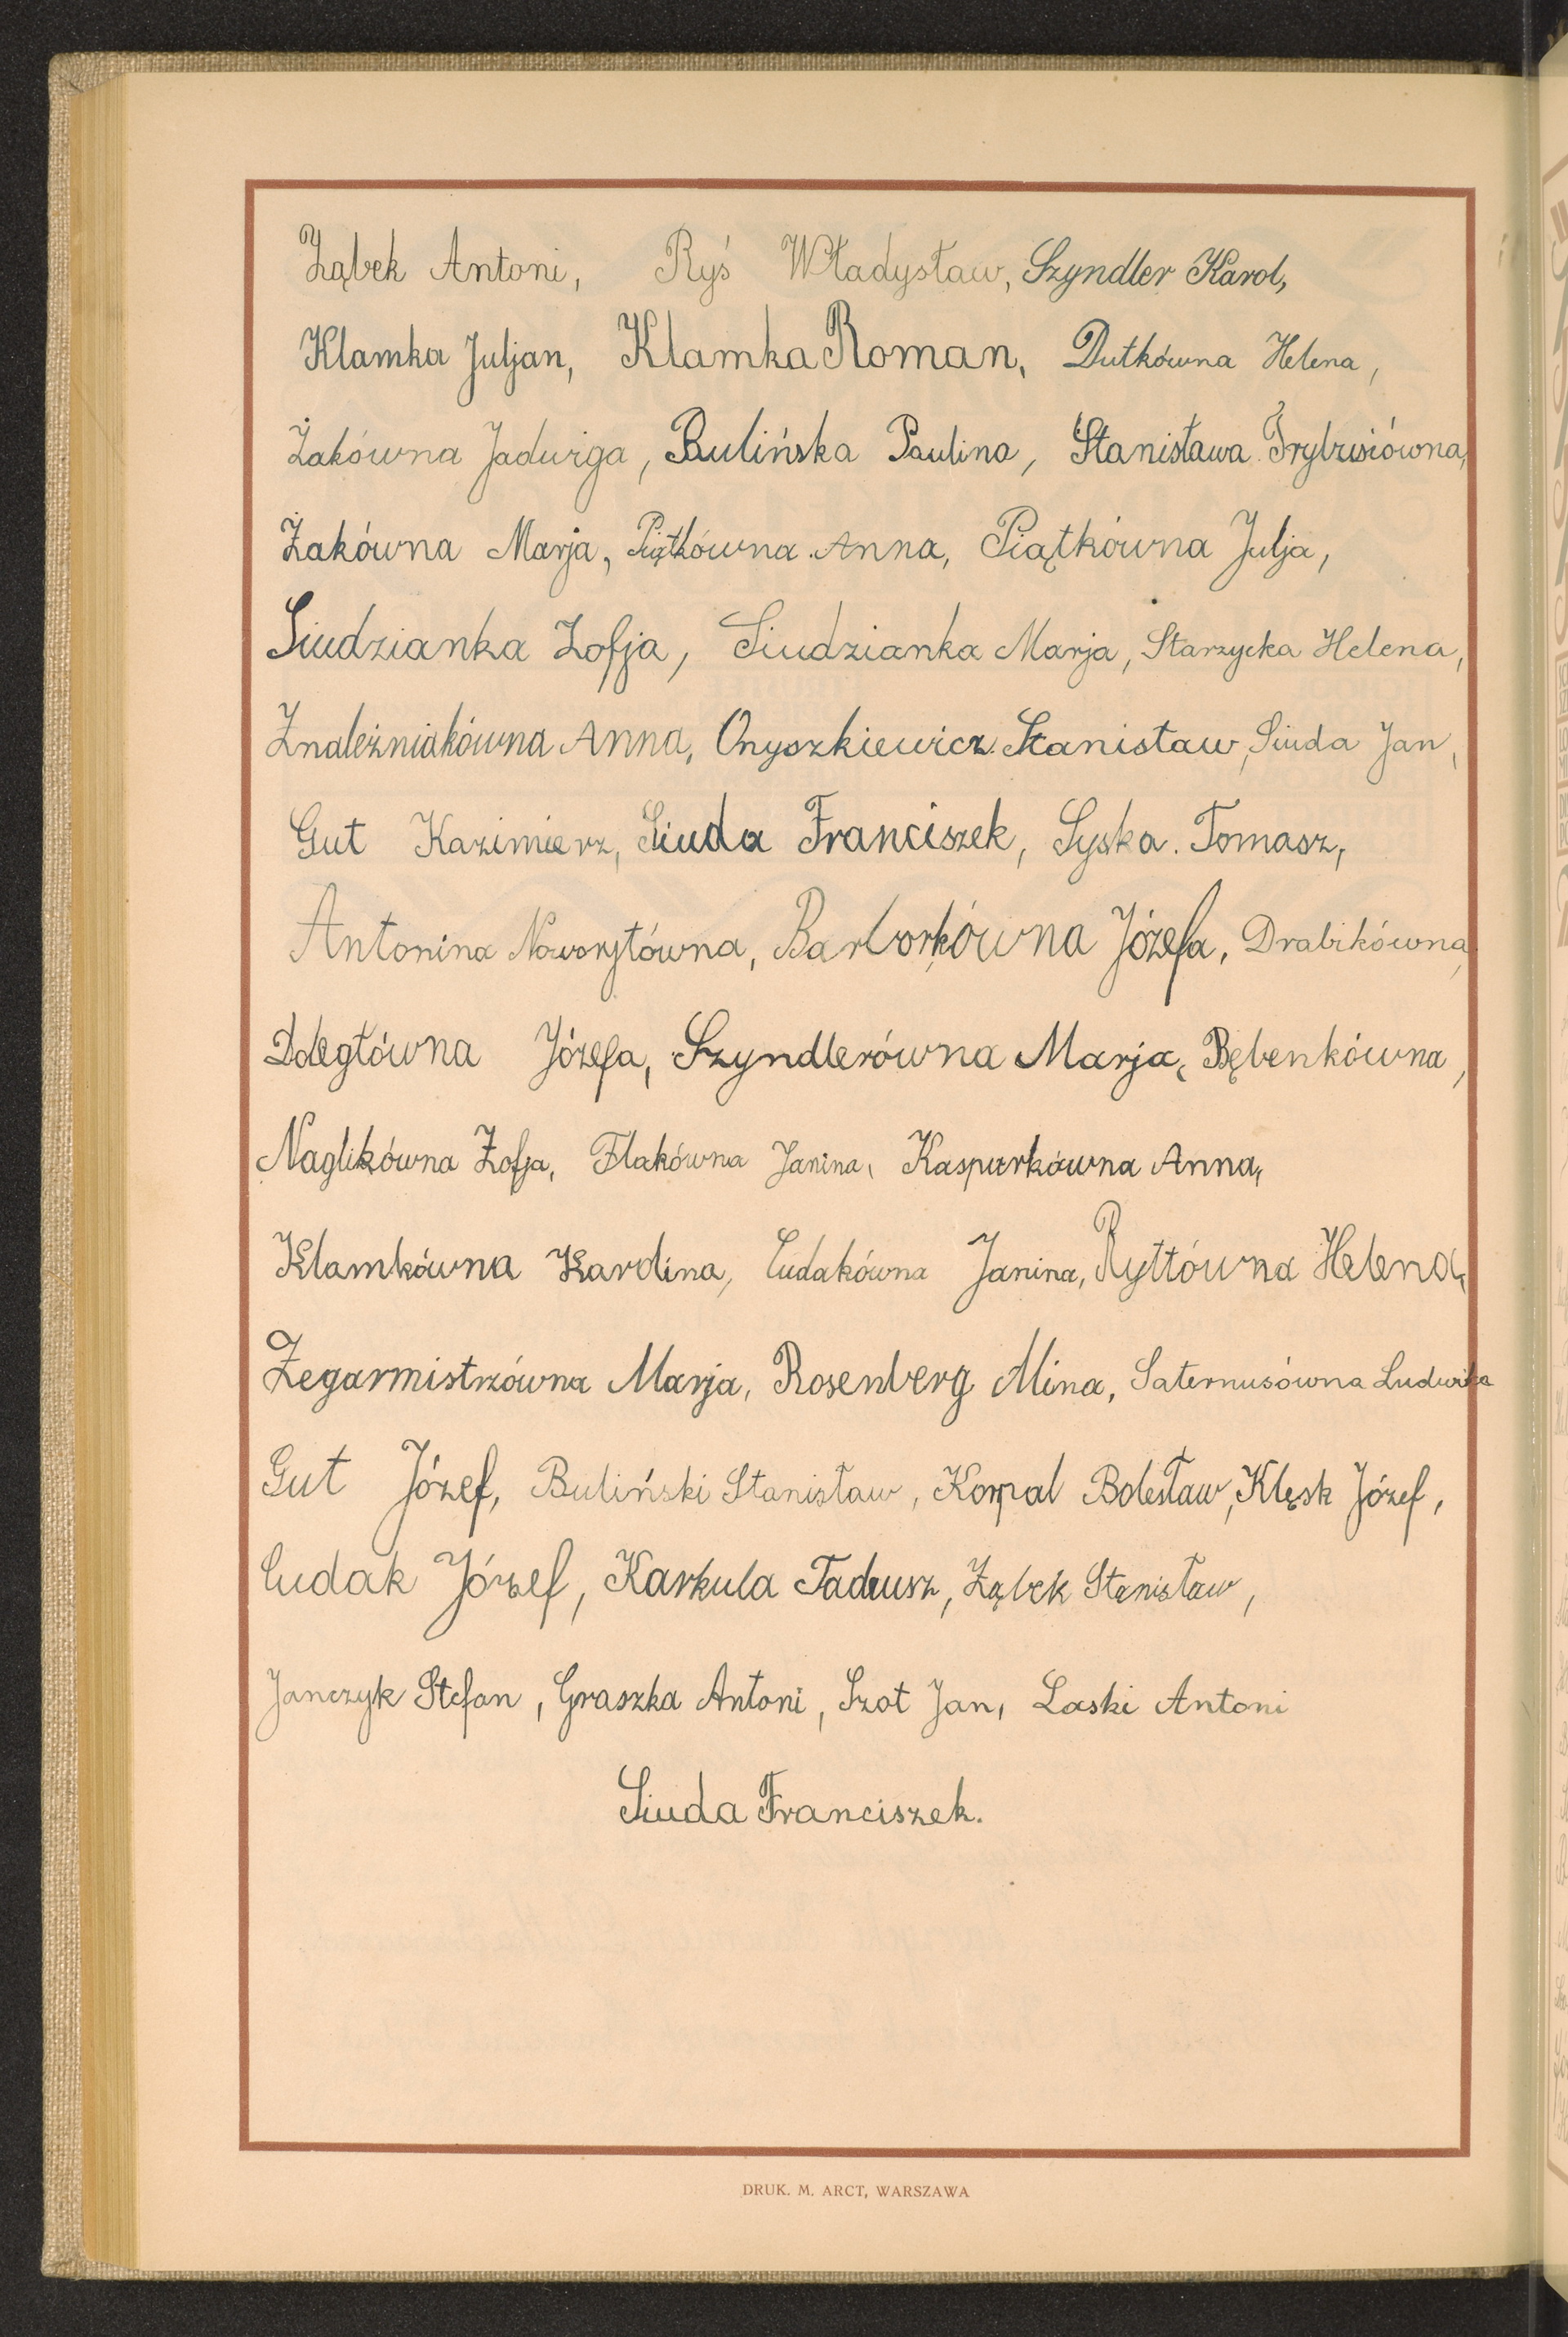 Ząbek Antoni, Ryś Władysław, Szyndler Karol,
Klamka Juljan, Klamka Roman, Dutkówna Helena,
Żakówna Jadwiga, Bulińska Paulina, Stanisława Trybusiówna,
Żakówna Marja, Piątkówna Anna, Piątkówna Julja,
Siudzianka Zofja, Siudzianka Marja, Starzycka Helena,
Znaleźniakówna Anna, Onyszkiewicz Stanisław, Siuda Jan,
Gut Kazimierz, Siuda Franciszek, Syska Tomasz,
Antonina Noworytówna, Barborkówna Józefa, Drabikówna,
Doległówna Józefa, Szyndlerówna Marja, Bębenkówna,
Naglikówna Zofja, Flakówna Janina, Kasparkówna Anna,
Klamkówna Karolina, Cudakówna Janina, Ryttówna Helena,
Zegarmistrzówna Marja, Rosenberg Mina, Saternusówna Ludwika
Gut Józef, Buliński Stanisław, Korpal Bolesław, Klęsk Józef,
Cudak Józef, Karkula Tadeusz, Ząbek Stanisław,
Janczyk Stefan, Graszka Antoni, Szot Jan, Laski Antoni
Siuda Franciszek.
DRUK. M. ARCT, WARSZAWA